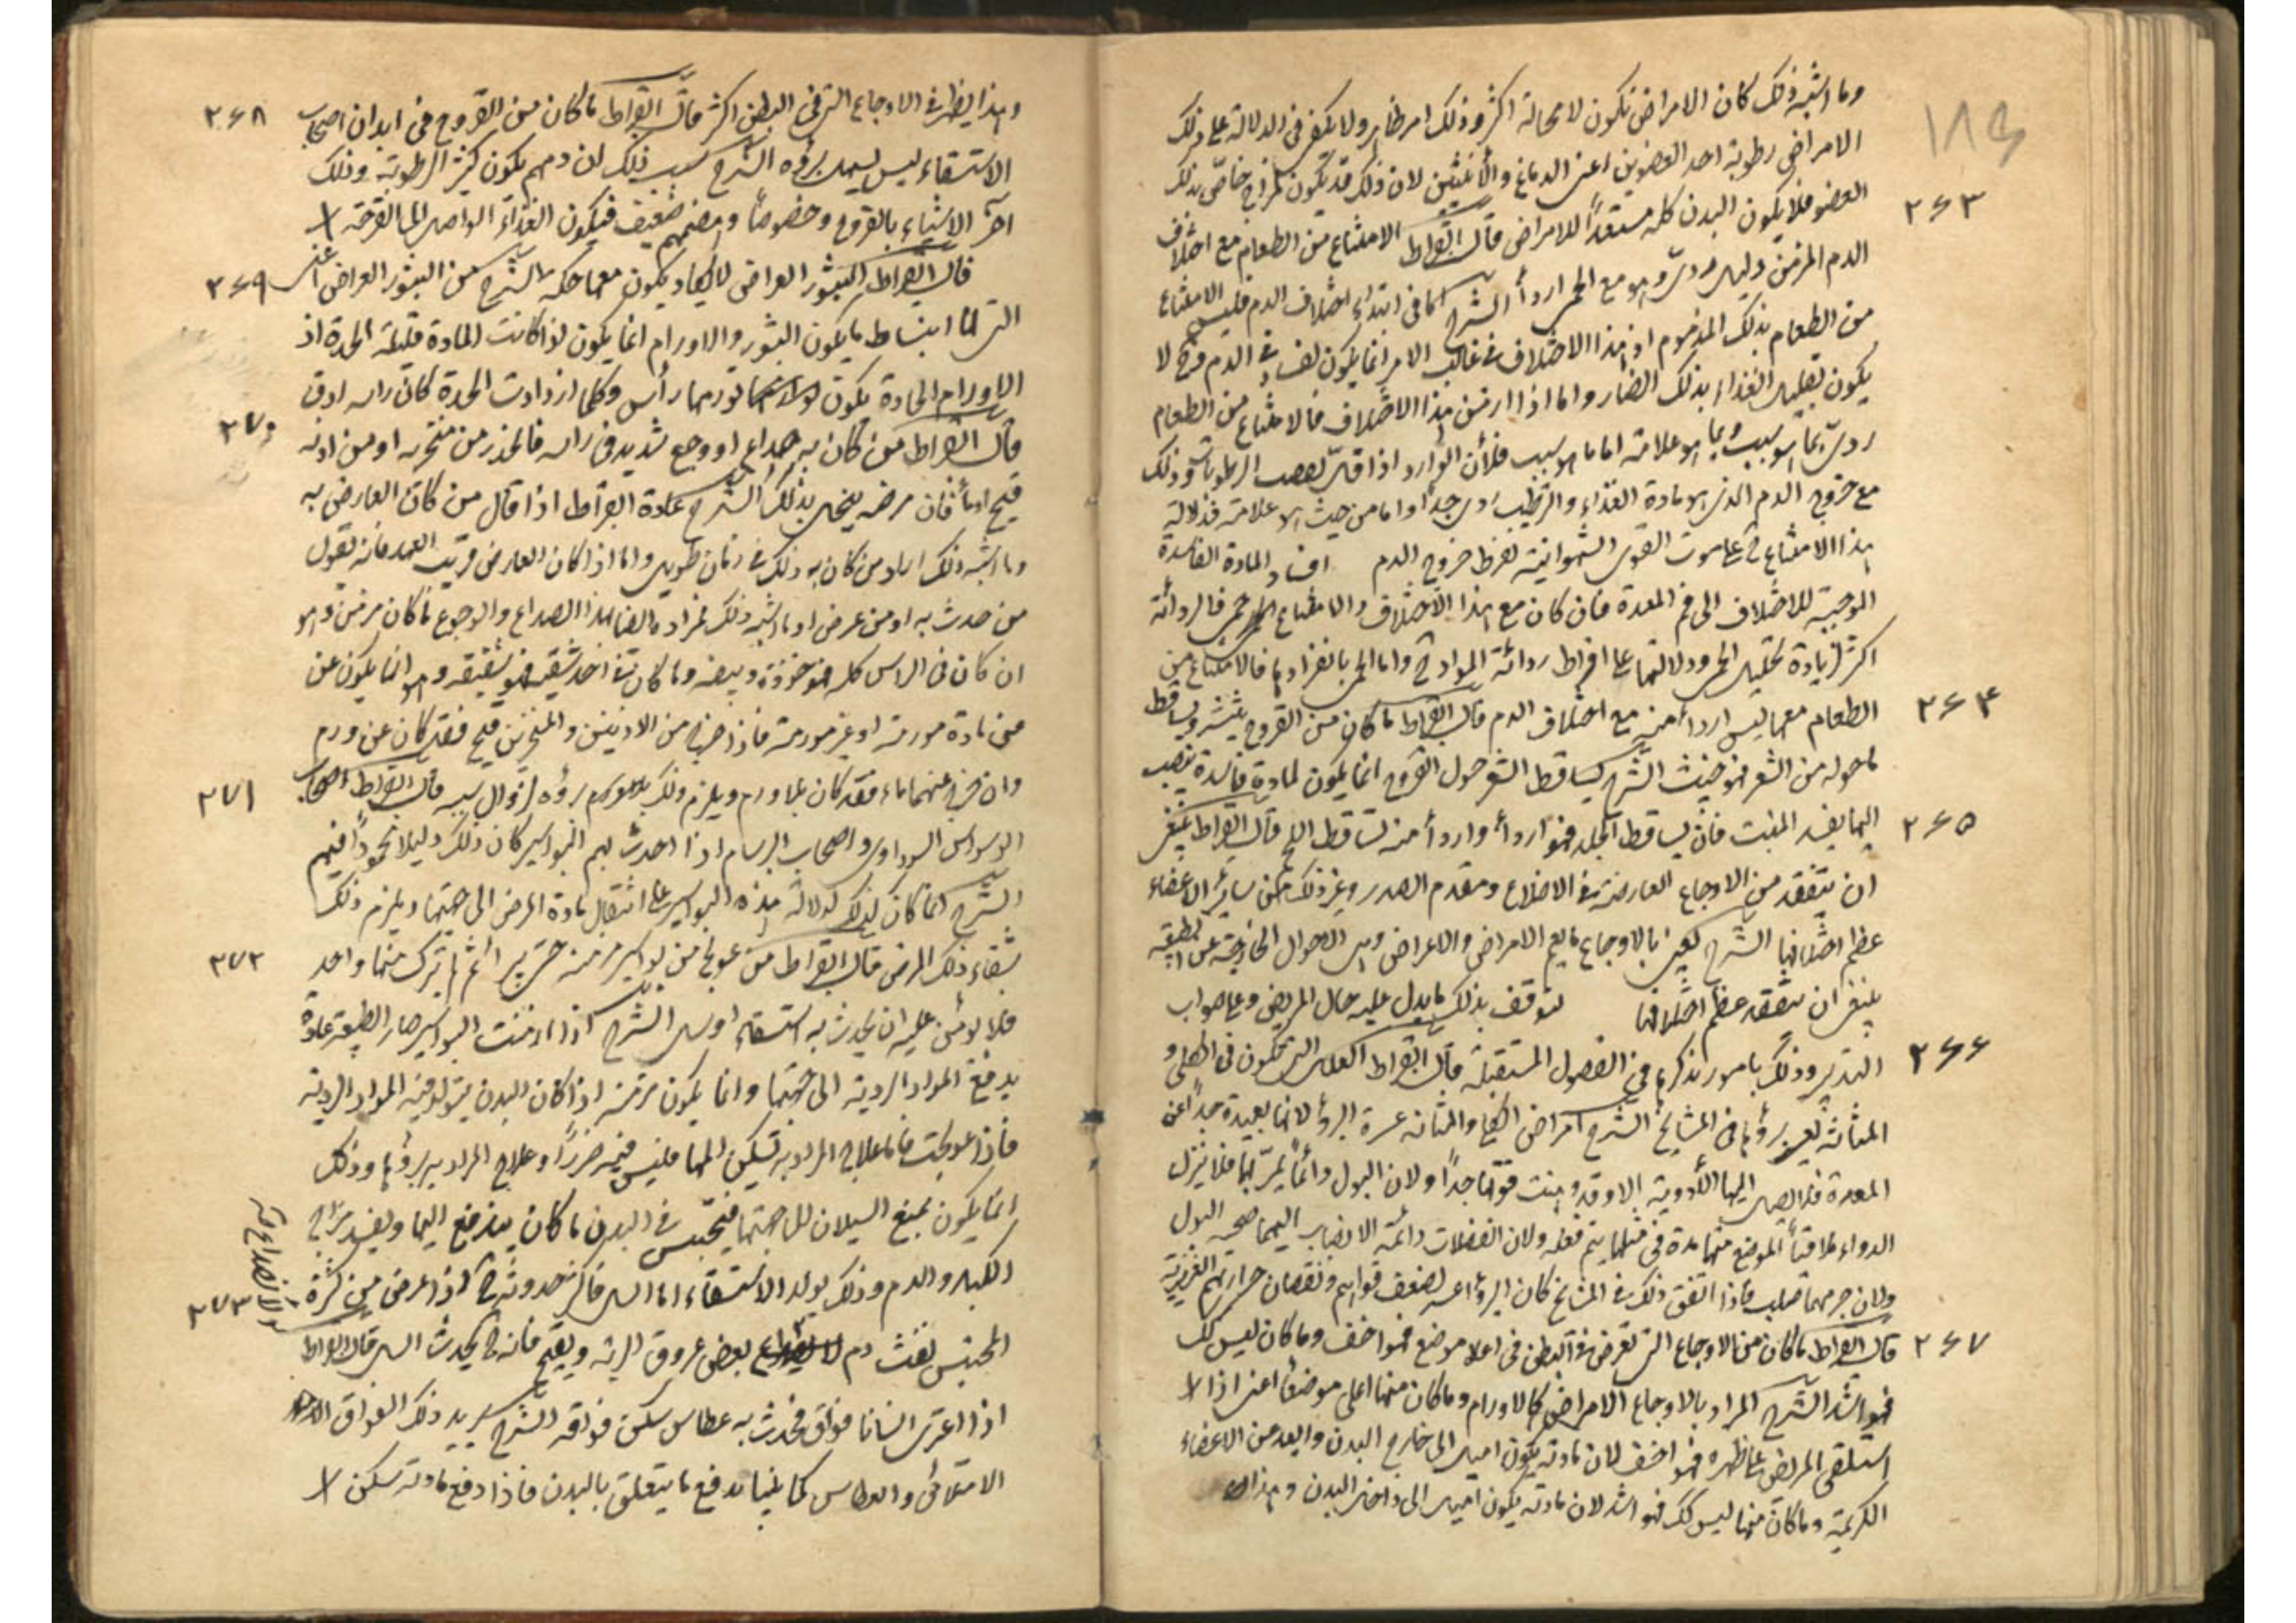 ١٨٩
وما اشبه ذلك كان الامراض تكون لا محالة اكثر وذلك امر ظاهر ولا يكفى فى الدلالة على ذلك
الامراض رطوبة احد العضوين اعنى الدماغ والأنثيين لان ذلك قد يكون لمزاج خاصّ بذلك
العضو فلا يكون البدن كله مستعداً للامراض قال ابقراط الامتناع من الطعام مع اختلاف
٢٦٣
الدم المزمن دليل ردىّ وهو مع الحمى اردأ الشرح اما فى ابتداء اختلاف الدم فليس الامتناع
من الطعام بذلك المذموم اذ هذا الاختلاف فى غالب الامر انما يكون لفساد فى الدم وح لا
يكون تقليل الغذاء بذلك الضار واما اذا ازمن هذا الاختلاف فالامتناع من الطعام
ردىّ بما هو سبب وبما هو علامة اما ما هو سبب فلأن الوارد اذا قلّ نقصت الرطوبات وذلك
مع خروج الدم الذى هو مادة الغذاء والترطيب ردى جداً واما من حيث هو علامة فدلالة
هذا الامتناع ح على موت القوى الشهوانية لفرط خروج الدم المادة الفاسدة
الموجبة للاختلاف الى فم المعدة فان كان مع هذا الاختلاف والامتناع حمى فالردائة
اكثر لزيادة تحليل الحمى ودلالتها على افراط ردائة المواد ح واما الحمى بانفرادها فالامتناع من
الطعام معها ليس اردأ منه مع اختلاف الدم قال ابقراط ما كان من القروح ينتثر ويتساقط
٢٦٤
ما حوله من الشعر فهو خبيث الشرح تساقط الشعر حول القروح انما يكون لمادة فاسدة تنصب
اليها يفسد المنبت فان تساقط الجلد فهو اردأ واردأ منه تساقط اللحم قال ابقراط ينبغى
٢٦٥
ان يتفقد من الاوجاع العارضة فى الاضلاع ومقدم الصدر وغير ذلك من سائر الاعضاء
عظم اختلافها الشرح يعنى بالاوجاع ما يعم الامراض والاعراض وهى الاحوال الخارجة عن الطبيعة
ينبغى ان يتفقد عظم اختلافها لتوقف بذلك ما يدل عليه حال المريض وعلى صواب
التدبير وذلك بامور نذكرها فى الفصول المستقبلة قال ابقراط العلل التى تكون فى الكلى و
٢٦٦
المثانة يعسر برؤها فى المشايخ الشرح امراض الكلى والمثانة عسرة البرؤ لانها بعيدة جداً عن
المعدة فلا تصل اليها الأدوية الا وقد وهنت قوتها جداً ولان البول دائماً يمرّ بها فلا يترك
الدواء ملاقياً لموضع منها مدة فى مثلها يتم فعله ولان الفضلات دائمة الانصباب اليهما صحبه البول
ولان جرمهما صلب فاذا اتفق ذلك فى المشايخ كان البرؤ اعسر لضعف قواهم ونقصان حرارتهم الغريزية
قال ابقراط ما كان من الاوجاع التى تعرض فى البطن فى اعلا موضع فهو اخف وما كان ليس كك
٢٦٧
فهو اشد الشرح المراد بالاوجاع الامراض كالاورام وما كان منها اعلى موضعاً اعنى اذا
استلقى المريض على ظهره فهو اخف لان مادته يكون اميل الى خارج البدن وابعد من الاعضاء
الكريمة وما كان منها ليس كك فهو اشد لان مادته يكون اميل الى داخل البدن وهذا
وهذا يظهر فى الاوجاع التى فى البطن اكثر قال ابقراط ما كان من القروح فى ابدان اصحاب
٢٦٨
الاستسقاء ليس يسهل برؤه الشرح سبب ذلك ان دمهم يكون كثير الرطوبة وذلك
اضرّ الاشياء بالقروح وخصوصاً وهضمهم ضعيف فيكون الغذاء الواصل الى القرحة
قال ابقراط البثور العراض لا يكاد يكون معها حكه الشرح من البثور العراض اعنى
٢٦٩
التى لها انبساط ما يكون البثور والاورام انما يكون اذا كانت المادة قليلة الحدة اذ
الاورام الحادة يكون تورمها رأس وكلما ازدادت الحدة كان راسه ادق
قال ابقراط من كان به صداع او وجع شديد فى راسه فانحدر من منخره او من اذنه
٢٧٠
قيح او ماء فان مرضه ينحل بذلك الشرح عادة ابقراط اذا قال من كان العارض به
وما اشبه ذلك اراد من كان به ذلك فى زمان طويل واما اذا كان العارض قريب العهد فانه يقول
من حدث به او من عرض او ما اشبه ذلك فمراده ايضا بهذا الصداع والوجوع ما كان مزمن وهو
ان كان فى الراس كله فهو خوذة وبيضه وما كان فى احد شقيه فهو شقيقه وهو انما يكون عن
من مادة مورمة او غير مورمة فاذا خرج من الاذنين والمنخرين قيح فقد كان عن ورم
وان خرج عنهما ماء فقد كان بلا ورم ويلزم ذلك برؤه لزوال سببه قال ابقراط اصحاب
٢٧١
الوسواس السوداوى واصحاب البرسام اذا احدث بهم البواسير كان ذلك دليلا محموداً فيهم
الشرح انما كان كذلك لدلالة هذه البواسير على انتقال مادة المرض الى جهتها ويلزم ذلك
شفاء ذلك المرض قال ابقراط من عولج من بواسير مزمنه حتى يبرأ ثم لم يترك منها واحد
٢٧٢
فلا يؤمن عليه ان يحدث به استسقاء او سل الشرح اذا ازمنت البواسير صار الطبيعة عادة
بدفع المواد الردية الى جهتها وانما يكون مزمنه اذا كان البدن يتولد فيه المواد الردية
فاذا عولجت فاما علاج المراد به تسكين المها فليس فيه ضرراً وعلاج المراد به برؤها وذلك
انما يكون بمنع السيلان الى جهتها فيحتبس فى البدن ما كان يندفع اليها ويفسد مزاج
الكبد والدم وذلك يولد الاستسقاء اما السل فاكثر حدوثه ح اذا عرض من كثرة
المحتبس نفث دم بعض عروق الرئه ويقيح فانه ح يحدث السل قال ابقراط
٢٧٣
اذا اعترى انسانا فواق فحدث به عطاس سكن فواقه الشرح يريد ذلك الفواق
الامتلائى والعطاس كما ينبئ بدفع ما يتعلق بالبدن فاذا دفع مادته سكن